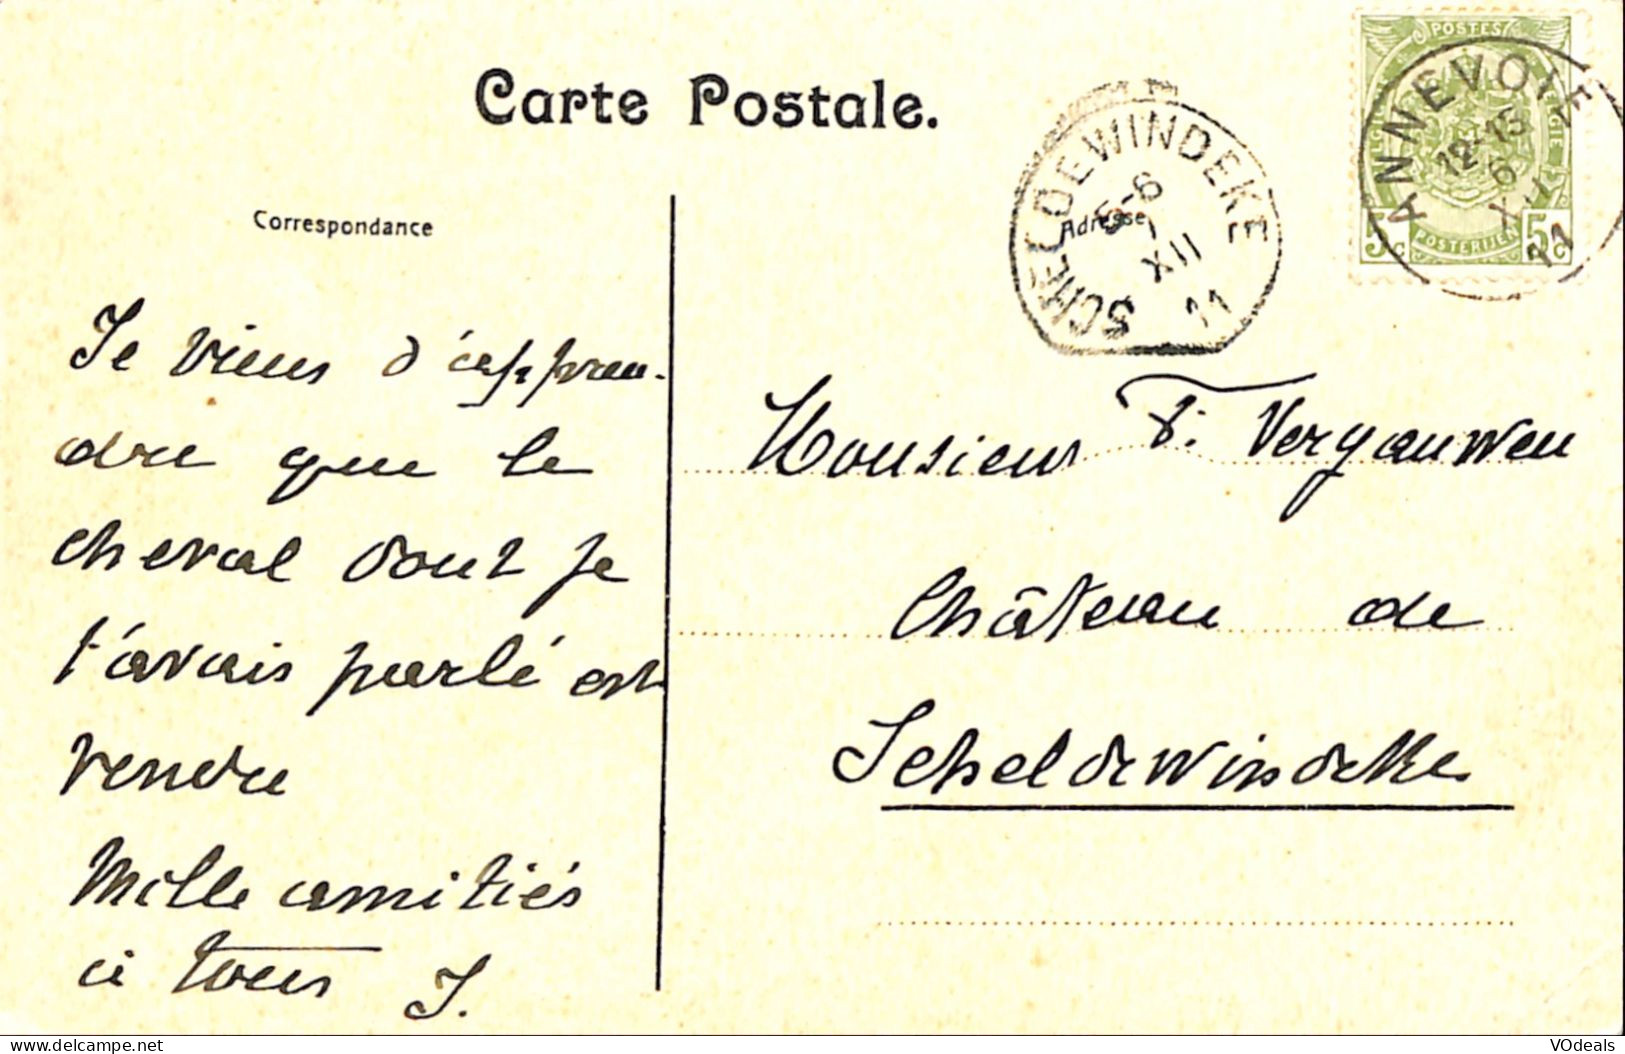 Carte Postale.
Correspondance
Adresse
POSTES
POSTERIJEN
5c
5c
ANNEVOIE
12-15
6
XII
11
SCHELDEWINDEKE
5-6
7
XII
11
Je viens d'appren-
dre que le
cheval dont je
t'avais parlé est
vendre
Mille amitiés
à tous J.
Monsieur F. Vergauwen
Château de
Scheldewindeke
delcampe.net
VOdeals